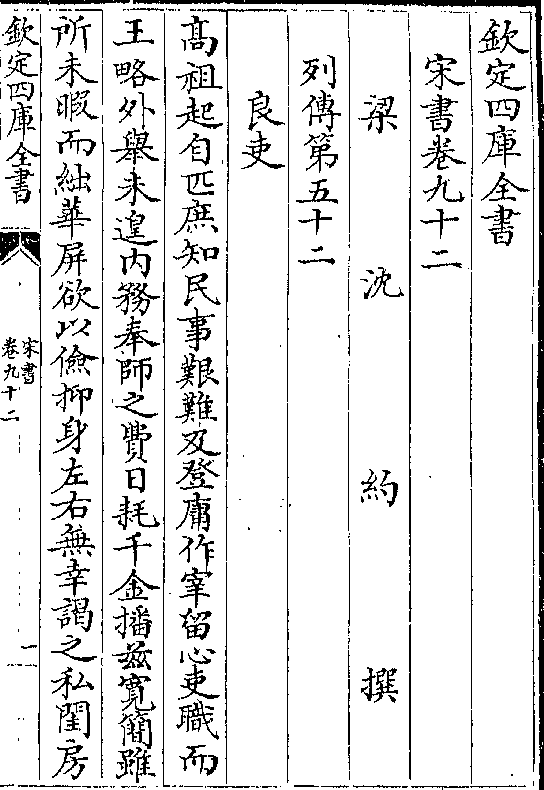 欽定四庫全書
宋書卷九十二
梁沈約撰
列傳第五十二
良吏
髙祖起自匹庶知民事艱難及登庸作宰留心吏職而
王略外舉未遑内務奉師之費日耗千金播兹寛簡雖
所未暇而絀華屏欲以儉抑身左右無幸謁之私閨房
欽定四庫全書
宋書
卷九十二
一